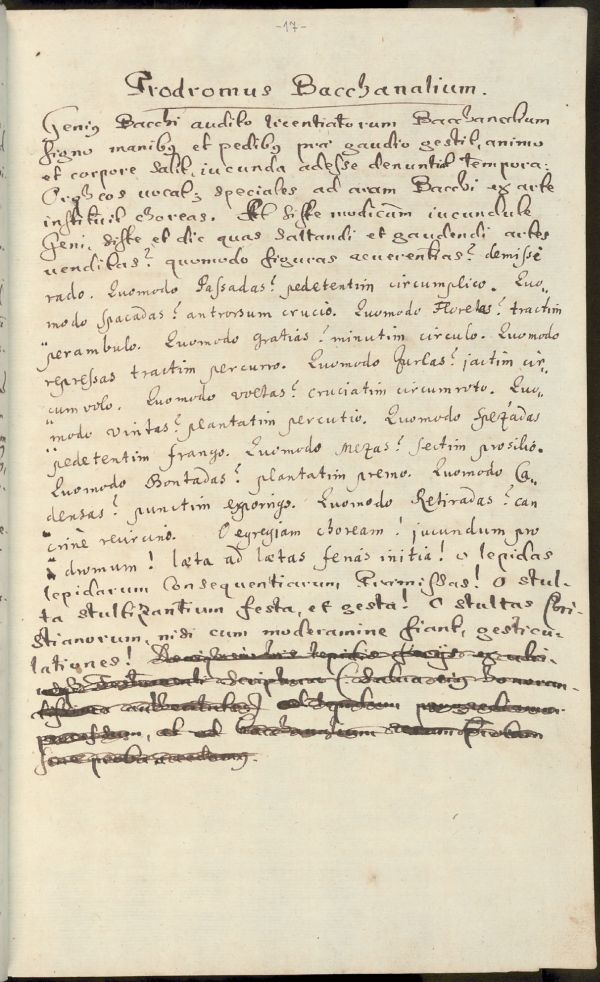 -17-
Prodromus Bacchanalium.
Geniꝰ Bacchi audito licentiatorum Bacchanalium
signo manibꝰ et pedibꝰ præ gaudio gestit, animo
et corpore salit, iucunda adesse denuntiat tempora:
speciales ad aram Bacchi ex arte
instituit choreas. At siste modicum iucundule
Geni, siste et dic quas saltandi et gaudendi artes
venditas? quomodo figuras acuerentias? demisse
rado. Quomodo Passadas? pedetentim circumplico. Quo„
modo spacadas? antrorsum crucio. Quomodo Floretas? tractim
„perambulo. Quomodo gratias? minutim circulo. Quomodo
repressas tractim percurro. Quomodo Gurlas? jactim cir„
„cum volo. Quomodo voltas? cruciatim circumroto. Quo„
„modo vintas? plantatim percutio. Quomodo spezadas
„pedetentim frango. Quomodo Mezas? sectim prosilio.
Quomodo Bontadas? plantatim premo. Quomodo Ca„
densas? punctim exporrigo. Quomodo Retiradas? can
„crinè recircino. O egregiam choream! jucundum pro
„dromum! læta ad lætas fenas initia! o lepidas
lepidarum Consequentiarum Præmissas! O stul-
ta stultizantium festa, et gesta! O stultas Chri-
stianorum, nisi cum moderamine fiant, gesticu-
lationes!